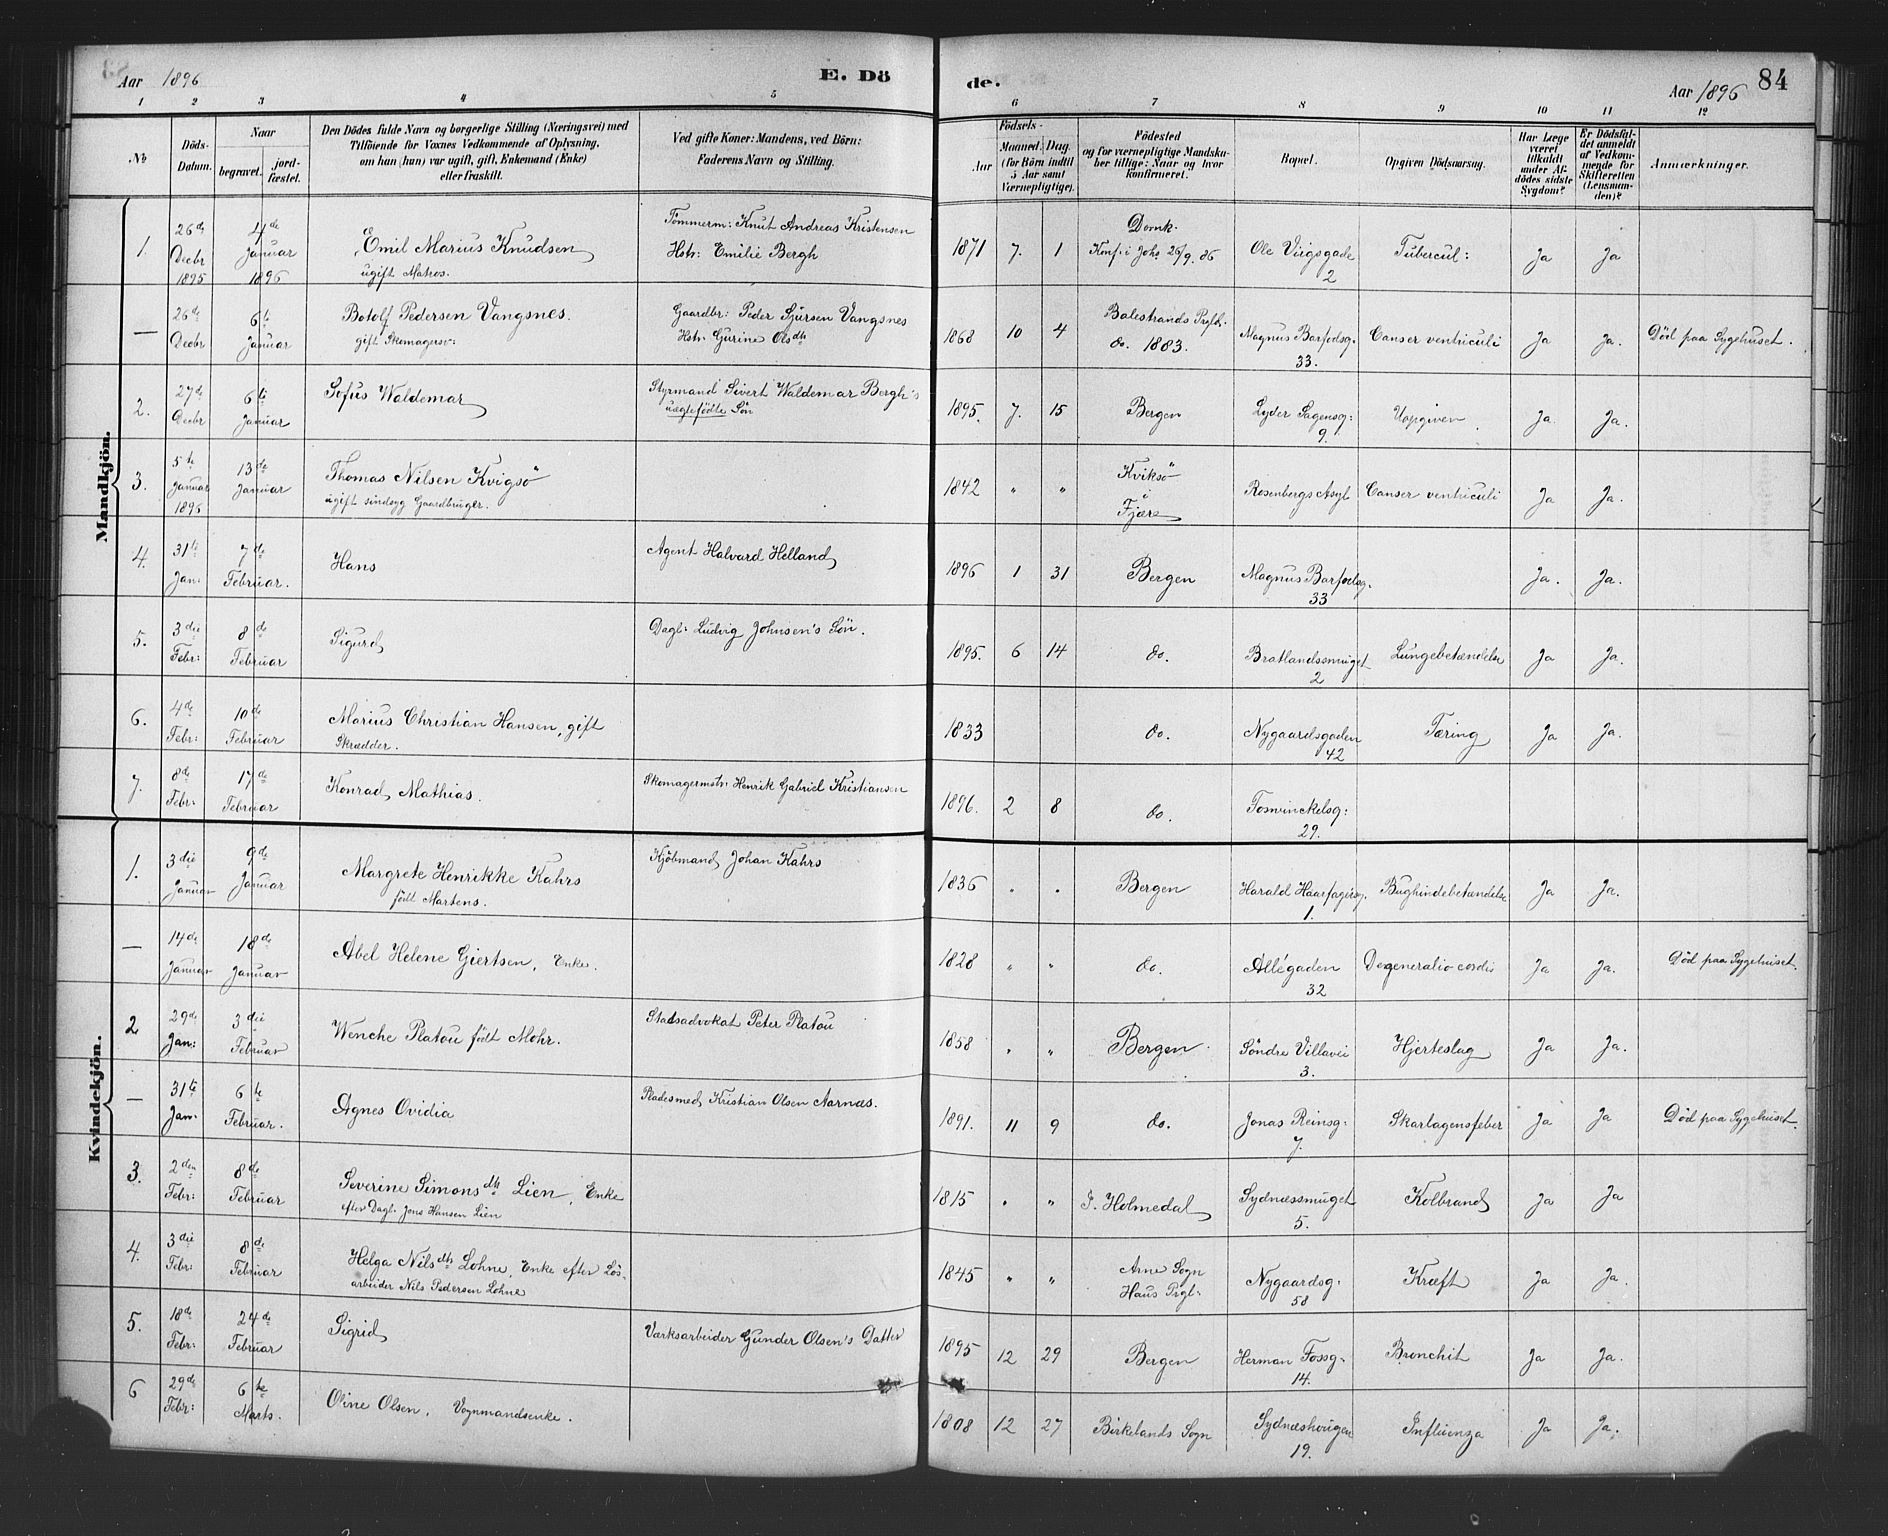 Aar 1896 E. Dö de. Aar 1896 84
1 2 3 4 5 6 7 8 9 10 11 12
No
Döds-Datum.
Naar
begravet.
jord-fæstet.
Den Dödes fulde Navn og borgerlige Stilling (Næringsvei) med
Tilföiende for Voxnes Vedkommende af Oplysning,
om han (hun) var ugift, gift, Enkemand (Enke)
eller fraskilt.
Ved gifte Koner: Mandens, ved Börn:
Faderens Navn og Stilling.
Födsels-
Aar
Maaned. Dag.
(for Börn indtil
5 Aar samt
Værnepligtige).
Födested
og for værnepligtige Mandska-
ber tillige: Naar og hvor
konfirmeret.
Bopæl.
Opgiven Dödsaarsag.
Har Læge
været
tilkaldt
under Af-
dödes sidste
Sygdom?
Er Dödsfal-
det anmeldt
af Vedkom-
mende for
Skifteretten
(Lensman-
den)?
Anmærkninger.
Mandkjön.
1. 26de Decbr 1895 4de Januar 1896 Emil Marius Knudsen ugift Matros. Tömmerm: Knut Andreas Kristensen Hstr: Emilie Bergh 1871 7. 1 Domk. Konf. i Johs 26/9. 86 Ole Viigsgade 2 Tubercul: Ja Ja
— 26de Decbr 6te Januar Botolf Pedersen Vangsnes. gift Skomagersv: Gaardbr: Peder Sjursen Vangsnes Hstr: Gurine Olsdtr 1868 10 4 Balestrands Prgld. do. 1883. Magnus Barfodsg. 33. Canser ventriculi Ja Ja. Död paa Sygehuset.
2. 27de Decbr 6te Januar Sofus Waldemar Styrmand Sivert Waldemar Bergh's uægtefödte Sön 1895. 7. 15 Bergen Lyder Sagensg: 9. Uopgiven Ja. Ja.
3. 5te Januar 1896 13de Januar Thomas Nilsen Kvigsö ugift sindsyg Gaardbruger. 1842 " " Kviksö i Fjære Rosenbergs Asyl Canser ventriculi Ja Ja.
4. 31te Jan: 7de Februar. Hans Agent Halvard Helland 1896 1 31 Bergen Magnus Barfodsg. 33 Ja. Ja.
5. 3die Febr: 8de Februar Sigurd Dagl: Ludvig Johnsen's Sön. 1895. 6 14 do. Bratlandssmuget 2 Lungebetændelse Ja Ja.
6. 4de Febr: 10de Februar Marius Christian Hansen, gift Skrædder. 1833 do. Nygaardsgaden 42 Tæring Ja Ja.
7. 8de Febr: 17de Februar Konrad Mathias. Skomagermstr: Henrik Gabriel Kristiansen 1896. 2 8 do. Fosvinckelsg: 29.
Kvindekjön.
1. 3die Januar 9de Januar Margrete Henrikke Kahrs födt Martens. Kjöbmand Johan Kahrs 1836 " " Bergen Harald Haarfagersg. 1. Bughindebetændelse Ja Ja.
— 14de Januar 18de Januar Abel Helene Giertsen, Enke. 1828 " " do. Allégaden 32 Degeneratio cordis Ja Ja. Död paa Sygehuset.
2 29de Jan: 3die Februar Wenche Platou födt Mohr. Stadsadvokat Peter Platou 1858 " " Bergen. Söndre Villavei 3. Hjerteslag Ja Ja.
— 31te Jan: 6te Februar. Agnes Ovidia Pladesmed Kristian Olsen Aarnæs. 1891. 11 9 do. Jonas Reinsg: 7. Skarlagensfeber Ja Ja Död paa Sygehuset.
3. 2den Febr: 8de Februar Severine Simonsdtr Lien, Enke efter Dagl: Jens Hansen Lien 1815 " " I. Holmedal Sydnæssmuget 5. Kolbrand Ja Ja
4. 3die Febr: 8de Februar Helga Nilsdtr Lohne, Enke efter Lös-arbeider Nils Pedersen Lohne 1845 " " Arne Sogn Haus Prgl: Nygaardsg. 58 Kræft Ja Ja.
5. 18de Febr: 24de Februar Sigrid Værksarbeider Gunder Olsen's Datter 1895 12 29 Bergen Herman Fossg. 14. Bronchit Ja Ja.
6 29de Febr: 6te Marts. Oline Olsen, Vognmandsenke. 1808 12 27 Birkelands Sogn Sydnæshougen 19. Influenza Ja Ja.